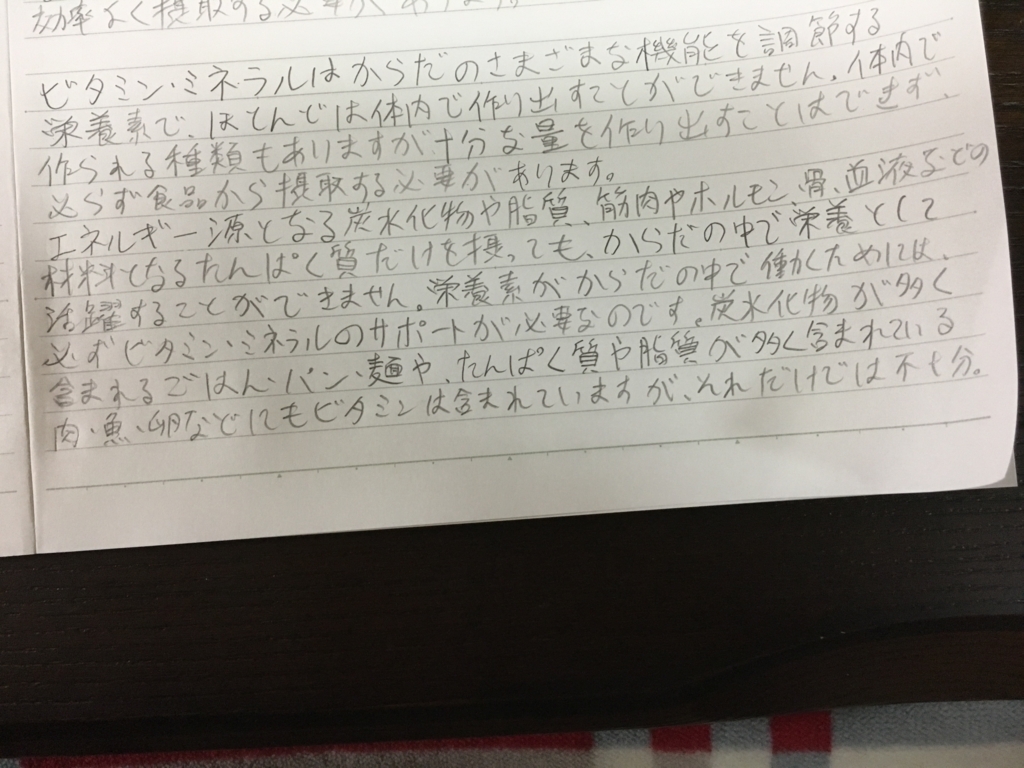 効率よく摂取する必要があります。
ビタミン・ミネラルはからだのさまざまな機能を調節する
栄養素で、ほとんどは体内で作り出すことができません。体内で
作られる種類もありますが十分な量を作り出すことはできず、
必らず食品から摂取する必要があります。
エネルギー源となる炭水化物や脂質、筋肉やホルモン、骨、血液などの
材料となるたんぱく質だけを摂っても、からだの中で栄養として
活躍することができません。栄養素がからだの中で働くためには、
必ずビタミン・ミネラルのサポートが必要なのです。炭水化物が多く
含まれるごはん・パン・麺や、たんぱく質や脂質が多く含まれている
肉・魚・卵などにもビタミンは含まれていますが、それだけでは不十分。